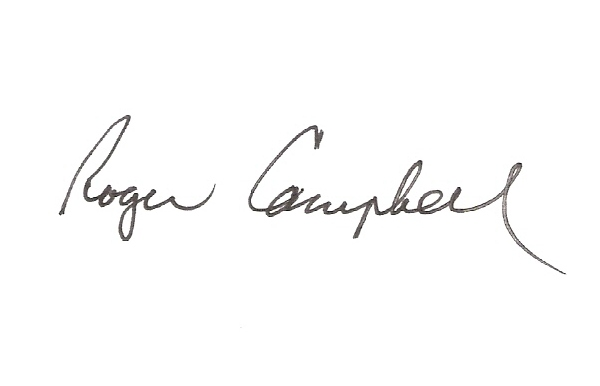 Roger Campbell